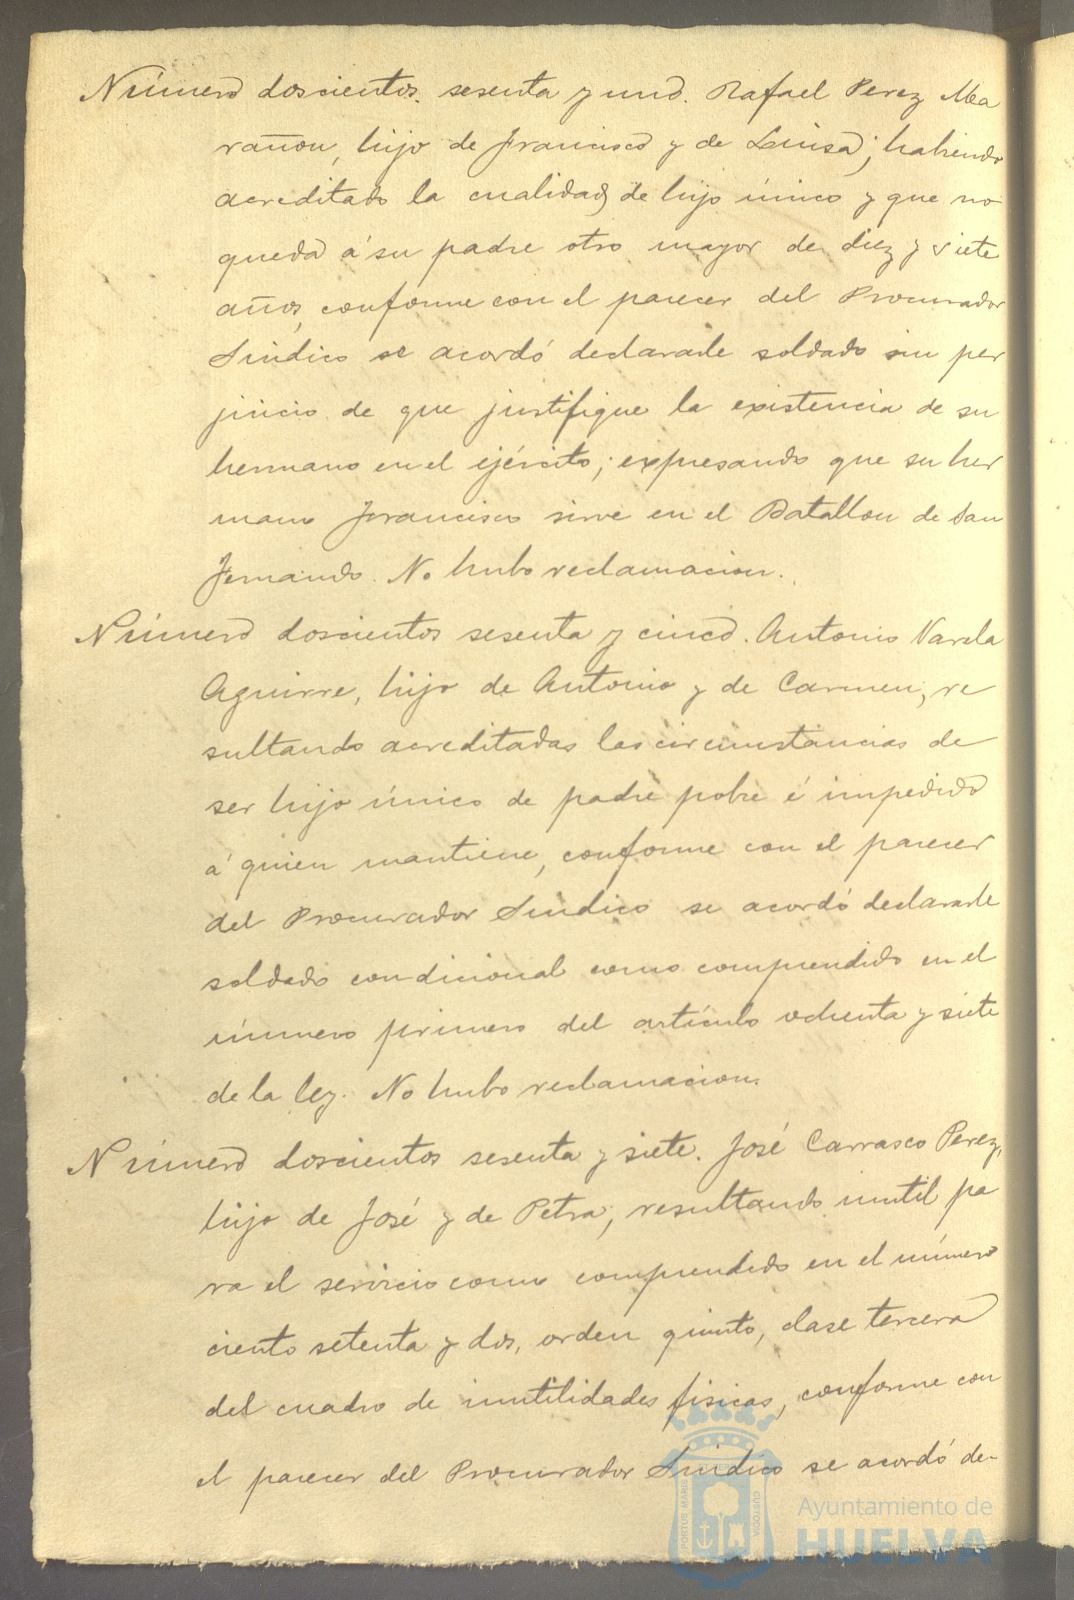 Número doscientos sesenta y uno. Rafael Perez Ma
rañon, hijo de Francisco y de Luisa; habiendo
acreditado la cualidad de hijo único y que no
queda á su padre otro mayor de diez y siete
años, conforme con el parecer del Procurador
Sindico se acordó declararle soldado sin per
juicio de que justifique la existencia de su
hermano en el ejército; expresando que su her
mano Francisco sirve en el Batallon de San
Fernando. No hubo reclamacion.
Número doscientos sesenta y cinco. Antonio Varela
Aguirre, hijo de Antonio y de Carmen, re
sultando acreditadas las circunstancias de
ser hijo único de padre pobre é impedido
á quien mantiene, conforme con el parecer
del Procurador Sindico se acordó declararle
soldado condicional como comprendido en el
número primero del artículo ochenta y siete
de la ley. No hubo reclamacion.
Número doscientos sesenta y siete. José Carrasco Perez,
hijo de José y de Petra, resultando inutil pa
ra el servicio como comprendido en el número
ciento setenta y dos, orden quinto, clase tercera
del cuadro de inutilidades fisicas, conforme con
el parecer del Procurador Sindico se acordó de-
PORTUS MARIS CUSTODIA
Ayuntamiento de
HUELVA